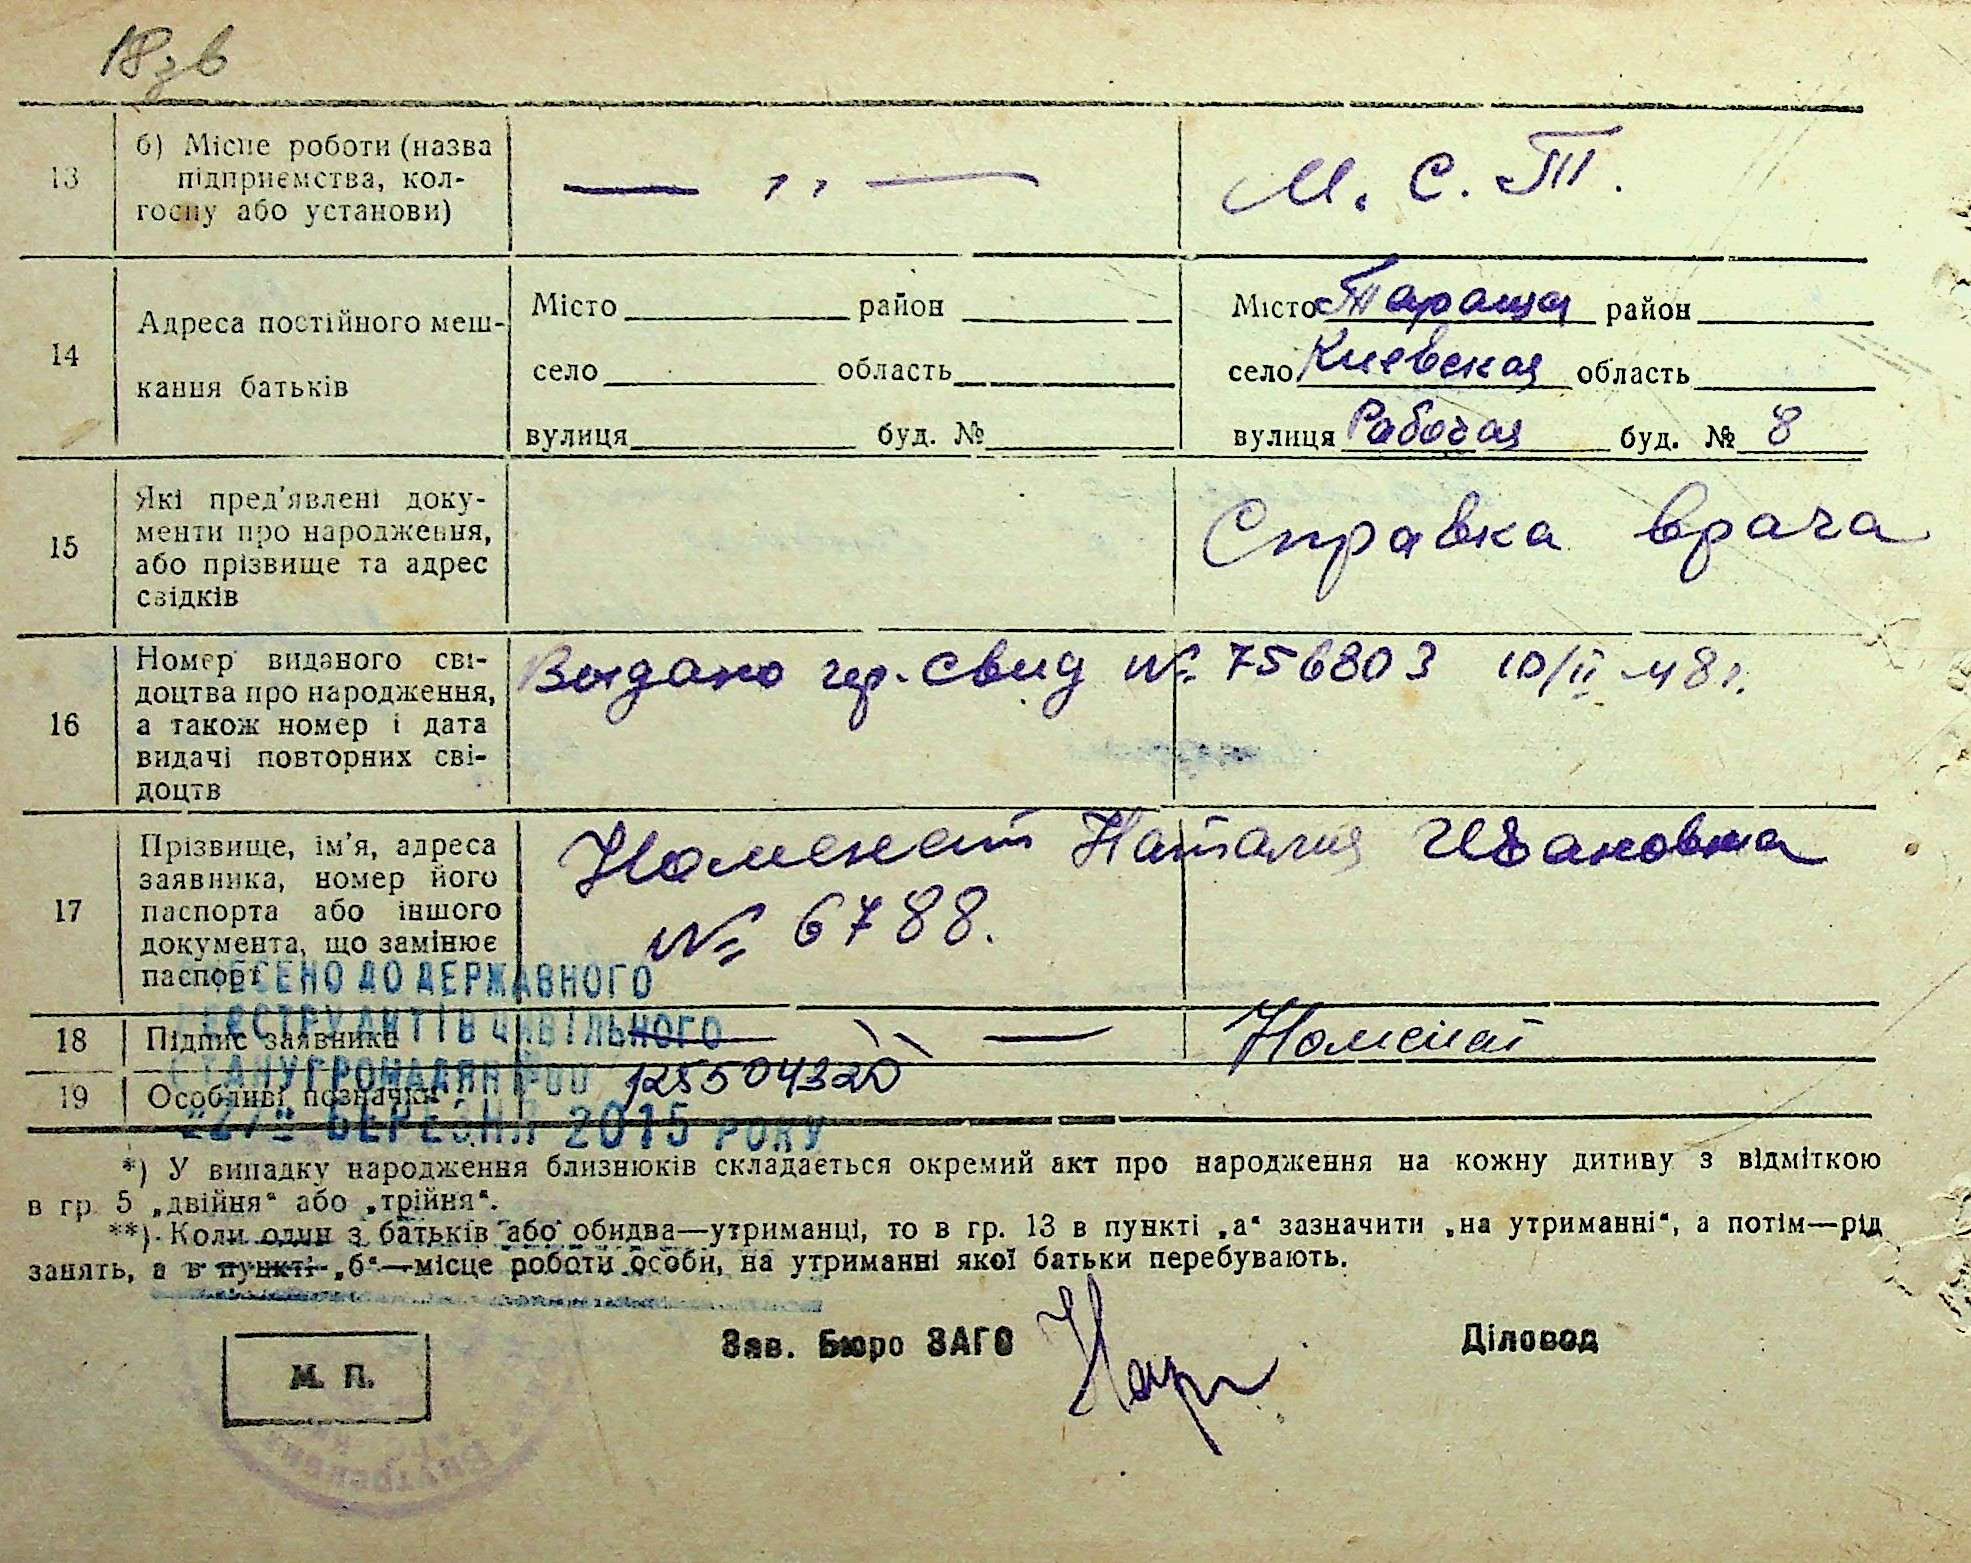 18зв
13 б) Місце роботи (назва підприємства, колгоспу або установи) — ,, — М. С. Т.
14 Адреса постійного мешкання батьків
Місто район Місто Тараща район
село область село Киевская область
вулиця буд. № вулиця Рабочая буд. № 8
15 Які пред'явлені документи про народження, або прізвище та адрес свідків Справка врача
16 Номер виданого свідоцтва про народження, а також номер і дата видачі повторних свідоцтв Выдано гер. свид № 756803 10/II 48 г.
17 Прізвище, ім'я, адреса заявника, номер його паспорта або іншого документа, що замінює паспорт Наталия Ивановна
№ 6788.
18 Підпис заявника — ,, —
19 Особливі позначки 12550432
ДО ДЕРЖАВНОГО
РЕЄСТРУ АКТІВ ЦИВІЛЬНОГО
СТАНУ ГРОМАДЯН
"27" БЕРЕЗНЯ 2015 РОКУ
*) У випадку народження близнюків складається окремий акт про народження на кожну дитину з відміткою
в гр. 5 „двійня“ або „трійня“.
**) Коли один з батьків або обидва—утриманці, то в гр. 13 в пункті „а“ зазначити „на утриманні“, а потім—рід
занять, а в пункті „б“—місце роботи особи, на утриманні якої батьки перебувають.
М. П. Зав. Бюро ЗАГС Діловод